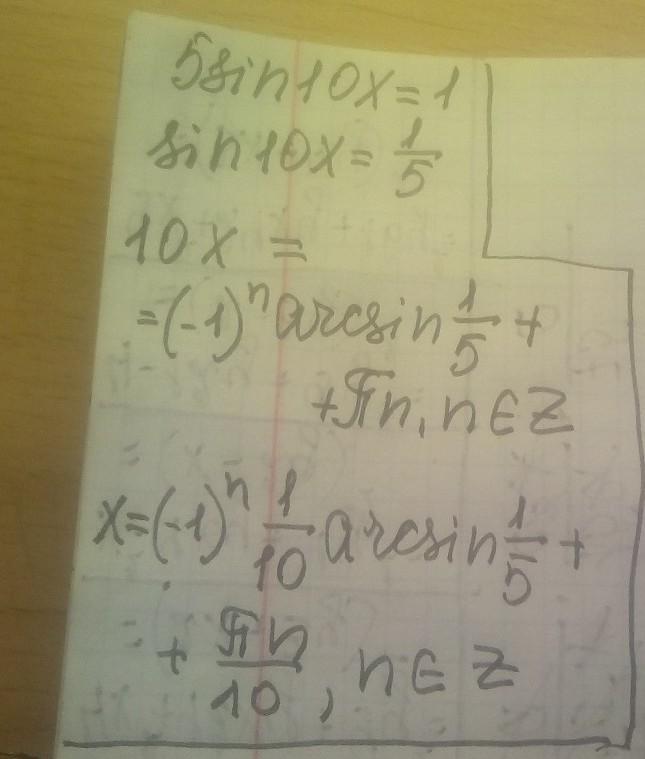 5sin10x=1
sin10x= 1/5
10x =
=(-1)ⁿarcsin 1/5 +
+πn, n∈Z
x=(-1)ⁿ 1/10 arcsin 1/5 +
+ πn/10, n∈Z